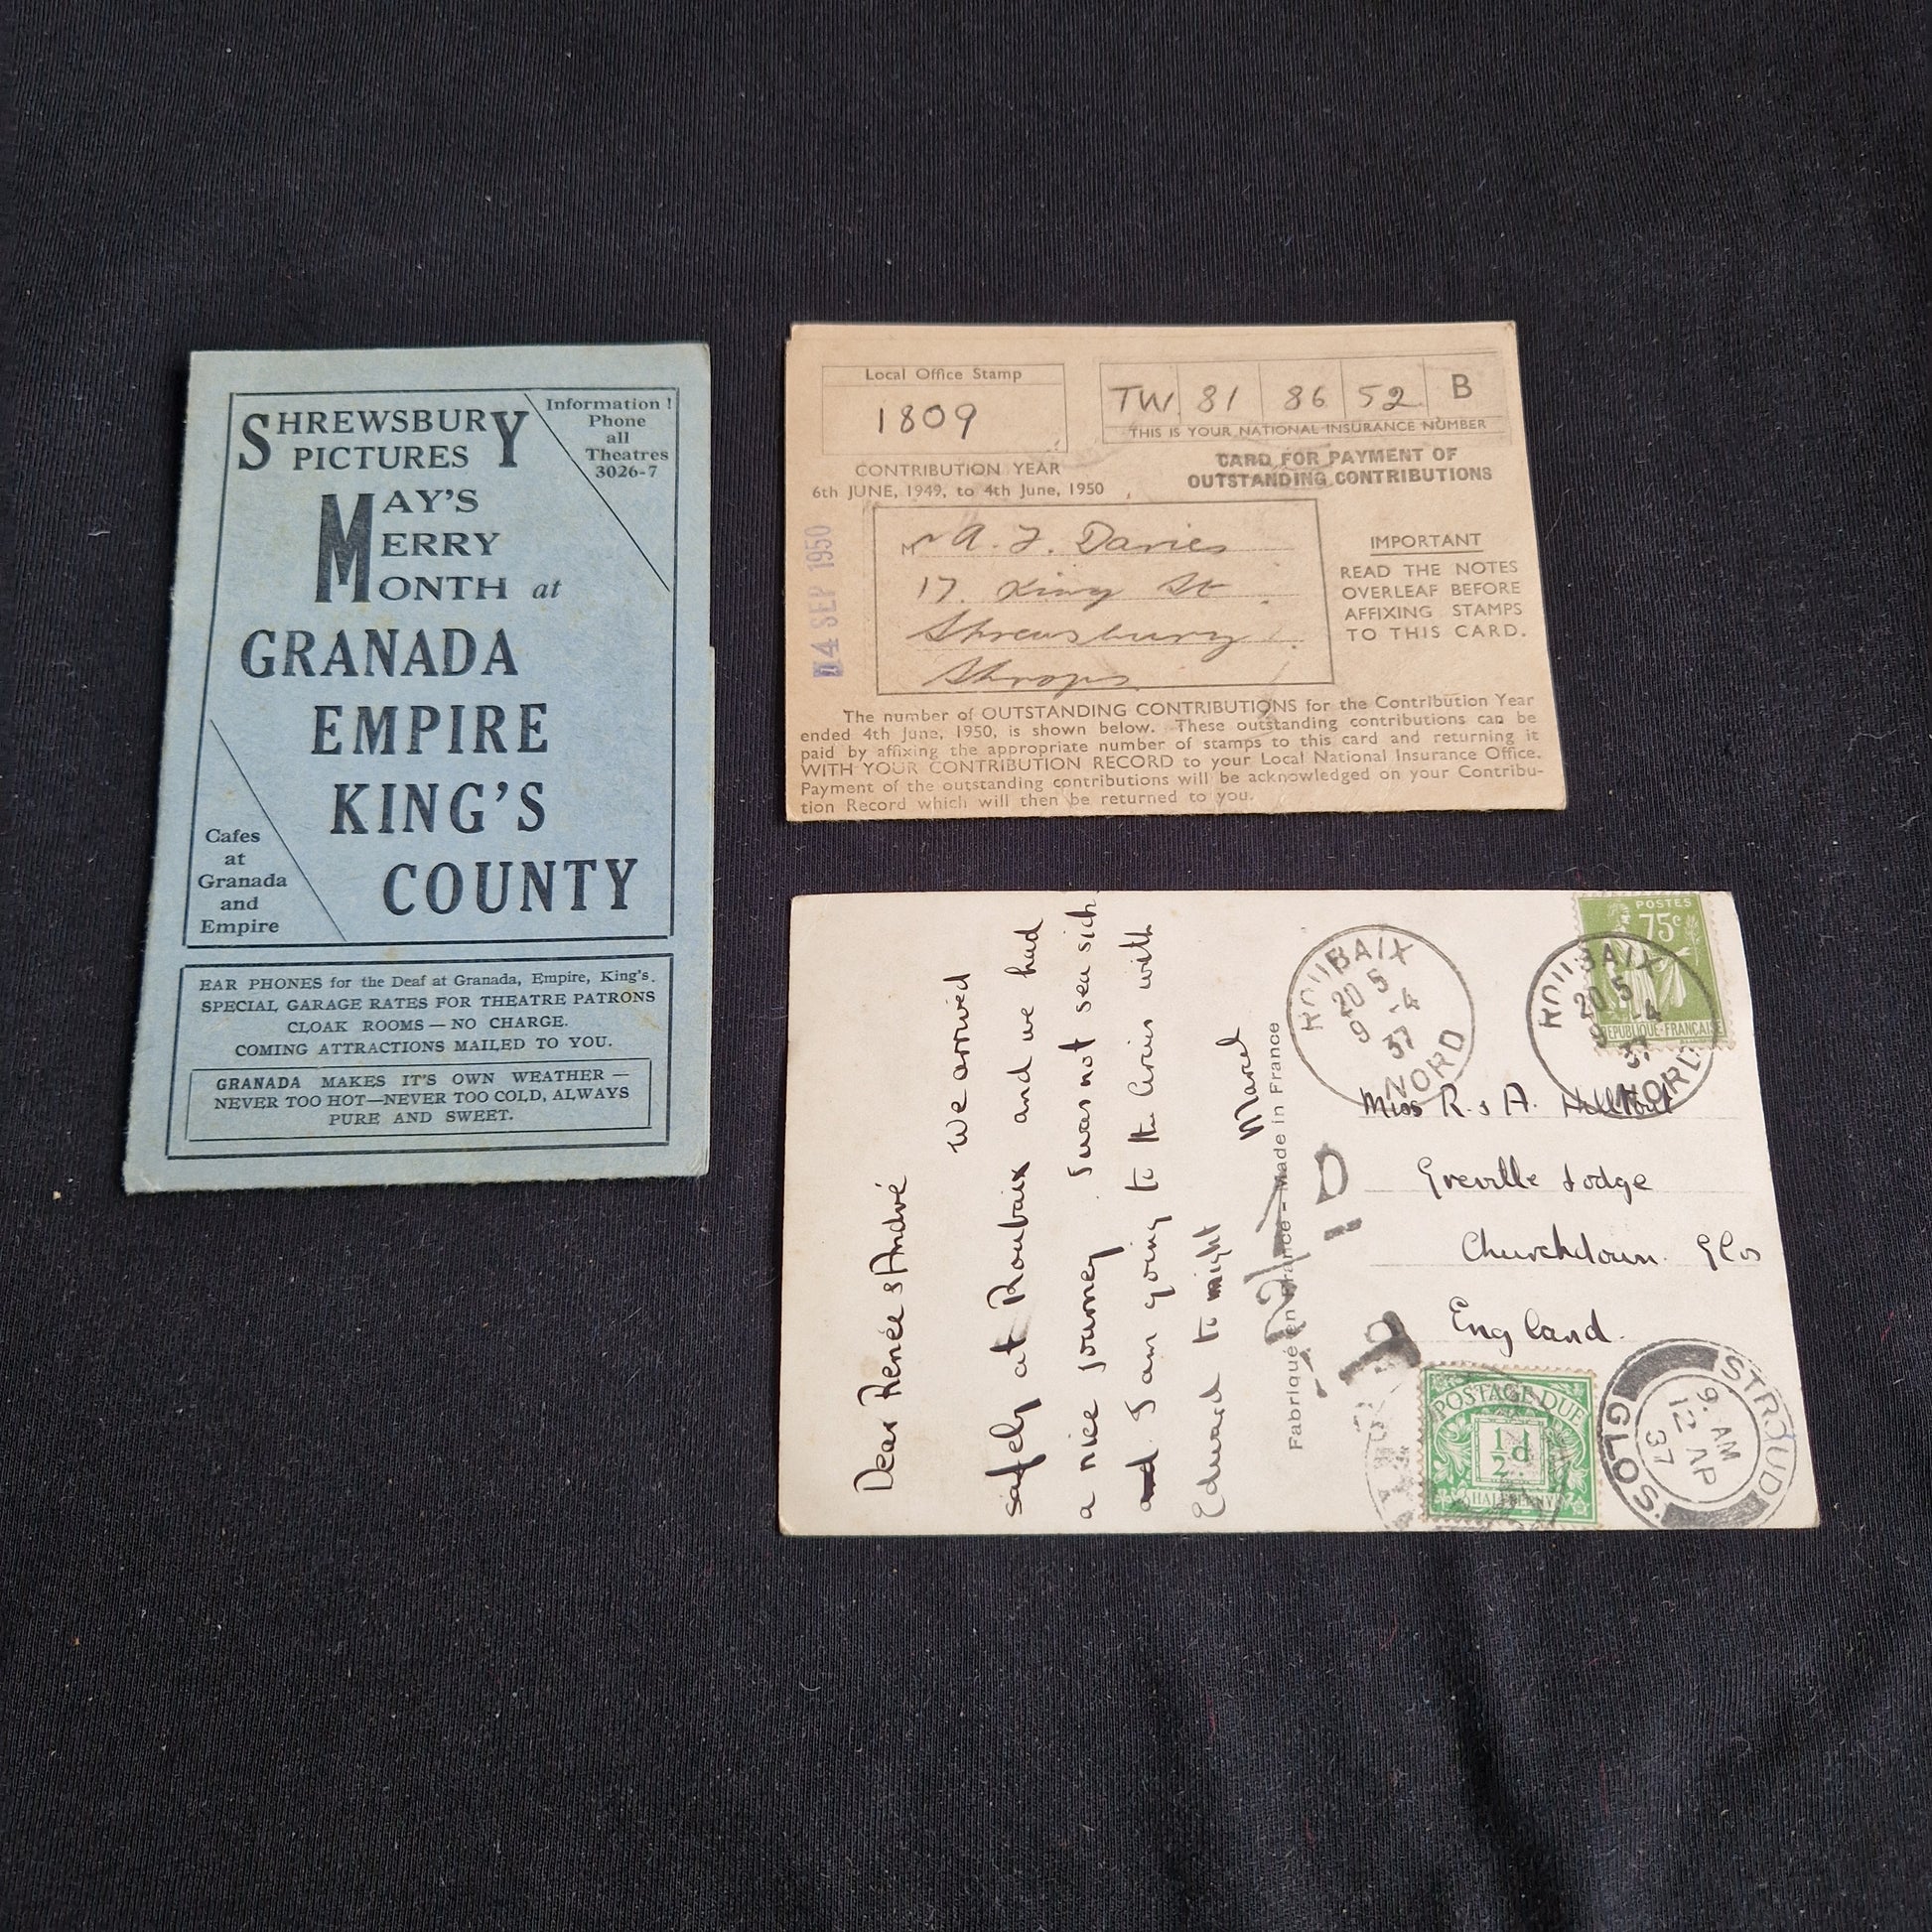 SHREWSBURY
PICTURES
Information !
Phone
all
Theatres
3026-7
MAY'S
MERRY
MONTH at
GRANADA
EMPIRE
KING'S
COUNTY
Cafes
at
Granada
and
Empire
EAR PHONES for the Deaf at Granada, Empire, King's.
SPECIAL GARAGE RATES FOR THEATRE PATRONS
CLOAK ROOMS — NO CHARGE.
COMING ATTRACTIONS MAILED TO YOU.
GRANADA MAKES IT'S OWN WEATHER —
NEVER TOO HOT—NEVER TOO COLD, ALWAYS
PURE AND SWEET.
Local Office Stamp
1809
TW 81 86 52 B
THIS IS YOUR NATIONAL INSURANCE NUMBER
CONTRIBUTION YEAR
6th JUNE, 1949, to 4th June, 1950
CARD FOR PAYMENT OF
OUTSTANDING CONTRIBUTIONS
04 SEP 1950
Mr A. J. Davies
17. King St
Shrewsbury
Shrops
IMPORTANT
READ THE NOTES
OVERLEAF BEFORE
AFFIXING STAMPS
TO THIS CARD.
The number of OUTSTANDING CONTRIBUTIONS for the Contribution Year
ended 4th June, 1950, is shown below. These outstanding contributions can be
paid by affixing the appropriate number of stamps to this card and returning it
WITH YOUR CONTRIBUTION RECORD to your Local National Insurance Office.
Payment of the outstanding contributions will be acknowledged on your Contribu-
tion Record which will then be returned to you.
Dear Renée & André
We arrived
safely at Roubaix and we had
a nice journey I was not sea sick
and I am going to the with
Edward to might
Marcel
Fabriqué en France - Made in France
ROUBAIX
20 5
9 -4
37
NORD
POSTES
75c
REPUBLIQUE FRANÇAISE
ROUBAIX
20 5
9 -4
37
NORD
Miss R. & A.
Greville Lodge
Churchdown. Glos
England.
T
POSTAGE DUE
½d
HALFPENNY
STROUD
9. AM
12 AP
37
GLOS.